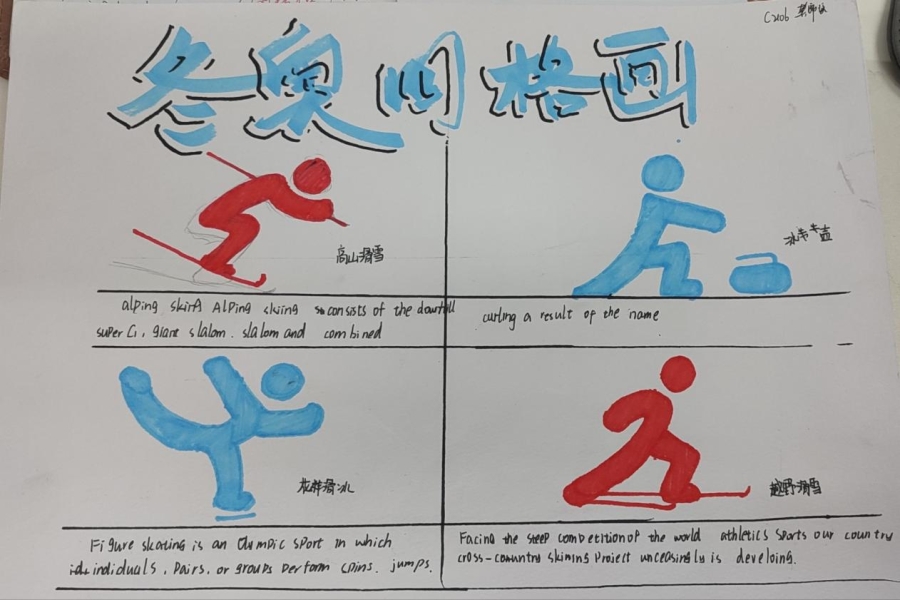 C2106
冬奥四格画
高山滑雪
冰壶
alping skirg Alping skiing consists of the downhill
super G, giant slalom. slalom and combined
curling a result of the name
花样滑冰
越野滑雪
Figure skating is an Olympic sport in which
individuals, pairs, or groups perform spins, jumps.
Facing the steep competition of the world athletics sports our country
cross-country skining project unceasingly is develoing.